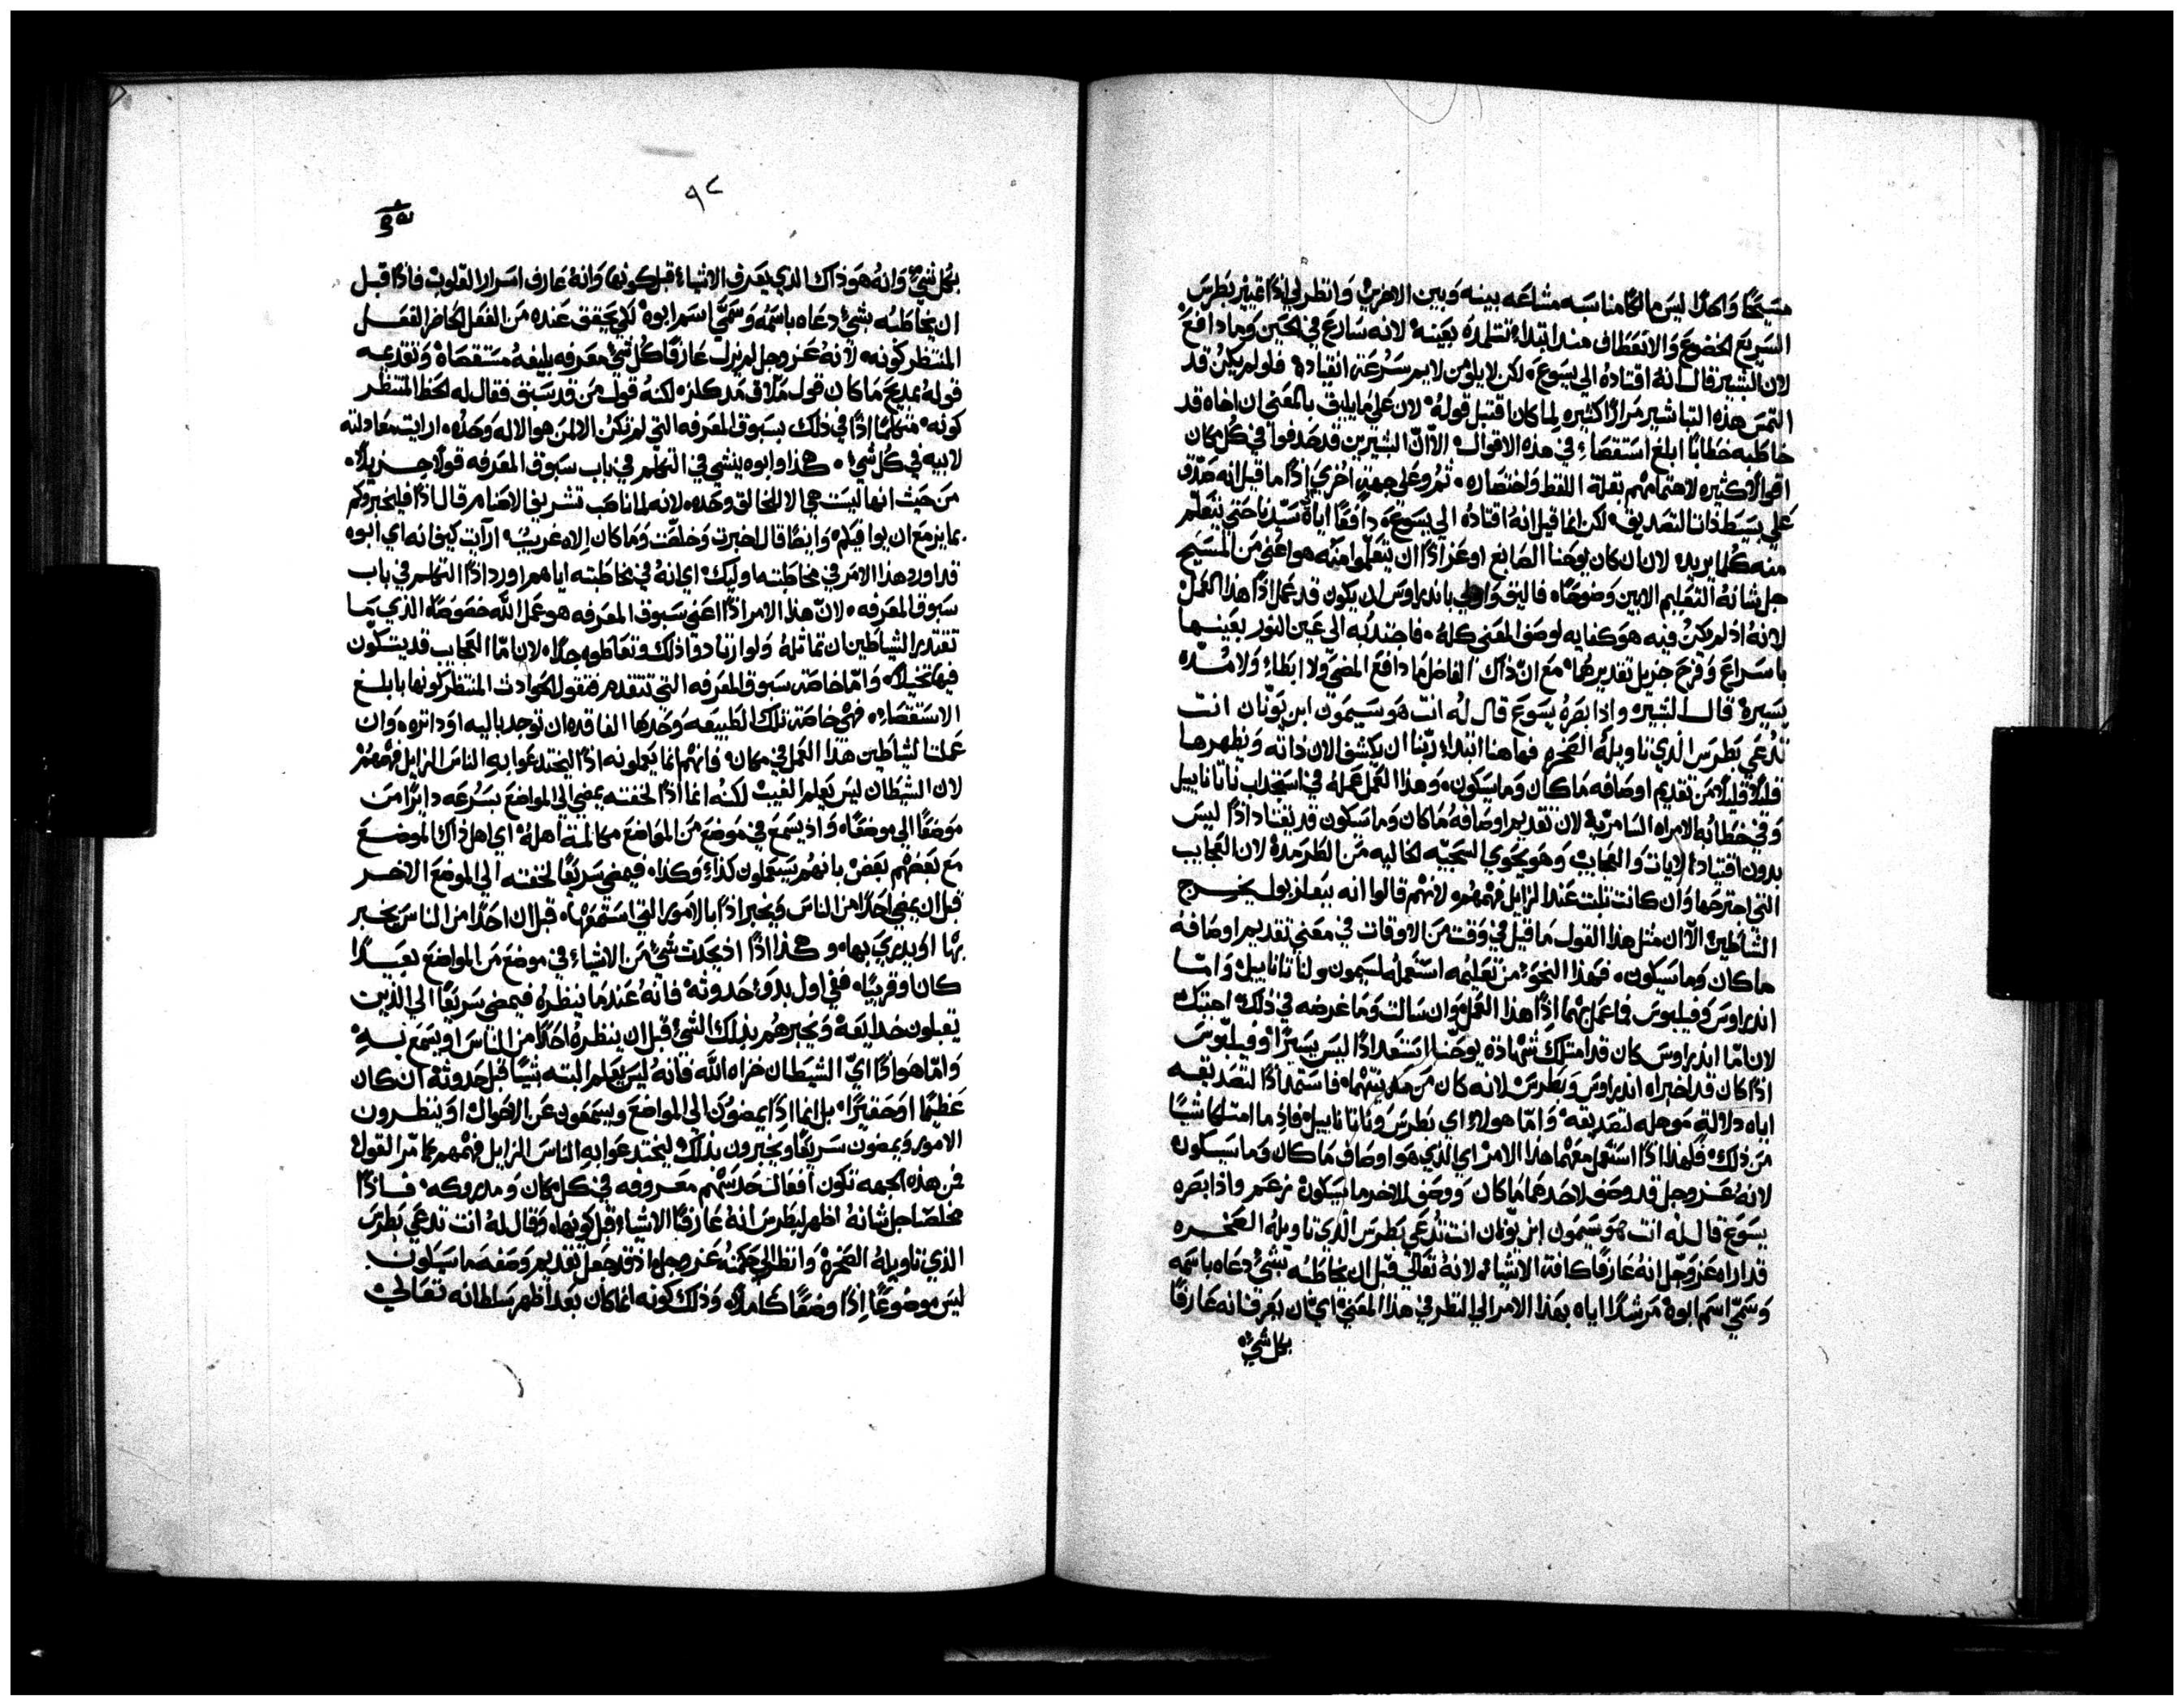 مسيحًا ولهذا ليس مالكًا مناسبه مشاعه بينه وبين الاخرين وانظر لي اذًا غيير بطرس
السريع الخضوع والانعطاف منذ ابتداء تتلمذه بعينه لانه سارع في الحين وما دافع
لان البشير قال انه اقتاده الي يسوع لكن لا يلومن لايم سرعة انقياده فلو لم يكن قد
التمس هذه التباشير مرارًا كثيره لما كان اقتبل قوله لان علي ما يليق بالمعني ان اخاه قد
خاطبه خطابًا ابلغ استقصاء في هذه الاقوال الّا انّ البشيرين قد حدفوا في كل مكان
اقوالًا كثيره لاهتمامهم بقلة اللفظ واختصاره ثم وعلي جهةٍ اخري اذًا ما قيل انه صدّق
علي بسيط ذات التصديق لكن انما قيل انه اقتاده الي يسوع دافعًا اياه سيدنا حتي يتعلّم
منه كلما يريد لان ان كان يوحنا الصابغ اوعز اذًا ان يتعلّموا منه هو اعني من المسيح
جل شانه التعليم الابين وضوحًا فاليق واولي باندراوس ان يكون قد عمل اذًا هذا العمل
لانه اذ لم يكن فيه هو كفايه لوصف المعني كله فاجتدبه الي عين النور بعينها
باسراع وفرح جزيل تقديرهما مع انّ ذاك الفاضل ما دافع المضي ولا ابطاء ولا مدّه
يسيرة قال البشير واذا بصره يسوع قال له انت هو سيمون ابن يونان انت
تُدعي بطرس الذي تاويله الصخره فها هنا ابتداء ربّنا ان يكشف لاهوته ويظهرها
قليلًا قليلًا من تقديم اوصافه ما كان وما سيكون وهذا العمل عمله في استجذاب ناتاناييل
وفي خطابه الامراه السامريّه لان تقديم اوصافه ما كان وما سيكون قد يقتاد اذًا ليس
بدون اقتياد الايات والعجايب وهو يحوي السجيّه الخاليه من الطرمدة لان العجايب
التي اجترحها وان كانت ثلبت عند الزايل فهمهم لانهم قالوا انه ببعلزبول يخرج
الشاطين الّا ان مثل هذا القول ما قيل في وقت من الاوقات في معني تقديم اوصافه
ما كان وما سيكون فهذا النحو من تعليمه استعمله لسيمون ولناتاناييل وامّا
اندراوس وفيلبوس فما عمل بهما اذًا هذا العمل وان سالت وما غرضه في ذلك اجبتك
لان امّا اندراوس كان قد امتلك شهادة يوحنا استعدادًا ليس يسيرًا وفيلبّوس
اذًا كان قد اخبراه اندراوس وبطرس لانه كان من مدينتهما فاستمد اذًا لتصديقه
اياه دلالة موهله لتصديقه وامّا هولاء اي بطرس وناتاناييل فاذ ما امتلكا شيًا
من ذلك فلهذا اذًا استعمل معهما هذا الامر اي الذي هو اوصاف ما كان وما سيكون
لانه عز وجل قد وصف لاحدهما ما كان ووصف للاخر ما سيكون نزعم واذا بصره
يسوع قال له انت هو سيمون ابن يونان انت تُدعي بطرس الذي تاويله الصخره
قد اراه عز وجل انه عارفًا كافة الاشياء لانه تعالي قبل ان يخاطبه بشي دعاه باسمه
وسمّي اسم ابوه مرشدًا اياه بهذا الامر الي النظر في هذا المعني اي ان يعرف انه عارفًا
بكل شي
٩٢
بكل شي وانه هو ذاك الذي يعرف الاشياء قبل كونها وانه عارف اسرار القلوب فاذًا قبل
ان يخاطبه بشي دعاه باسمه وسمّي اسم ابوه لكي يحقق عنده من الفعل الحاضر الفعل
المنتظر كونه لانه عز وجل لم يزل عارفًا كل شي معرفه بليغه مستقصاه وتقدمه
قوله بمديح ما كان قول ملاق مدكلز لكنه قول من قد سبق فقال له لحظ المنتظر
كونه متكلمًا اذًا في ذلك بسبوق المعرفه التي لم تكن الا لمن هو الاله وحده ارايت معادلته
لابيه في كل شي هذا وابوه ينشي في التكلم في باب سبوق المعرفه قولًا جزيلًا
من حيث انها ليست هي الا للخالق وحده لانه لما ناصب تشريف الاصنام قال اذًا فليخبروكم
بما يزمع ان يوافيكم وايضًا قال اخبرت وخلّصت وما كان اله غريب ارايت كيف انه اي ابوه
قد اورد هذا الامر في مخاطبته اوليك اي انه في مخاطبته اياهم اورد اذًا التكلم في باب
سبوق المعرفه لانّ هذا الامر اذًا اعني سبوق المعرفه هو عمل الله خصوصًا الذي ما
تقتدر الشياطين ان تماثله ولو ارتادوا ذلك وتعاطوه جدًا لان امّا العجايب قد يتكون
فيها تخيلًا وامّا خاصة سبوق المعرفه التي تتقدم فتقول الحوادث المنتظر كونها بابلغ
الاستقصاء فهي خاصة تلك الطبيعه وحدها الفاقده ان توجد باليه او داثره وان
عملت الشياطين هذا العمل في مكان فانهم انما يعملونه اذًا ليختدعوا به الناس الزايل فهمهم
لان الشيطان ليس يعلم الغيب لكنه انما اذًا لخفته يمضي الي المواضع بسرعه دايرًا من
موضعًا الي موضعًا واذ يسمع في موضع من المواضع مكالمة اهله اي اهل ذاك الموضع
مع بعضهم بعض بانهم يستعملون كذا وكذا فيمضي سريعًا لخفته الي الموضع الاخر
قبل ان يمضي احدًا من الناس ويخبر اذًا بالامور التي استمعها قبل ان احدًا من الناس يخبر
بها او يدري بها وهكذا اذًا اذ يحدث شي من الاشياء في موضع من المواضع بعيدًا
كان او قريبًا ففي اول بدوّ حدوثه فانه عندما ينظره فيمضي سريعًا الي الذين
يقبلون خدايعه ويخبرهم بذلك الشي قبل ان ينظره احدًا من الناس او يسمع به
وامّا هو اذًا ايّ الشيطان خزاه الله فانه ليس يعلم البته شيًا قبل حدوثه ان كان
عظيمًا او حقيرًا بل انما اذًا يمضون الي المواضع ويسمعون عن الاحوال او ينظرون
الامور ويمضون سريعًا ويخبرون بذلك ليختدعوا به الناس الزايل فهمهم كما مرّ القول
فمن هذه الجهه تكون افعال حدسهم معروفه في كل مكان ومدروكه فاذًا
مخلصنا جل شانه اظهر لبطرس انه عارفًا الاشياء قبل كونها وقال له انت تدعي بطرس
الذي تاويله الصخره وانظر الي حكمته عز وجل اذ قد جعل تقديم وصفه ما سيكون
ليس موضوعًا اذًا وصفًا كاملًا وذلك كونه انما كان بعد اظهر سلطانه تعالي